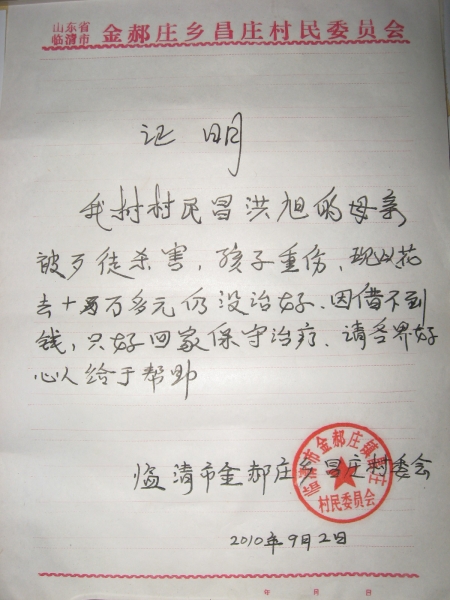 山东省
临清市 金郝庄乡昌庄村民委员会
证 明
我村村民昌洪旭的母亲
被歹徒杀害，孩子重伤，现以花
去十万多元仍没治好、因借不到
钱，只好回家保守治疗、请各界好
心人给于帮助
临清市金郝庄乡昌庄村委会
临清市金郝庄镇昌庄
村民委员会
2010年9月2日
年 月 日